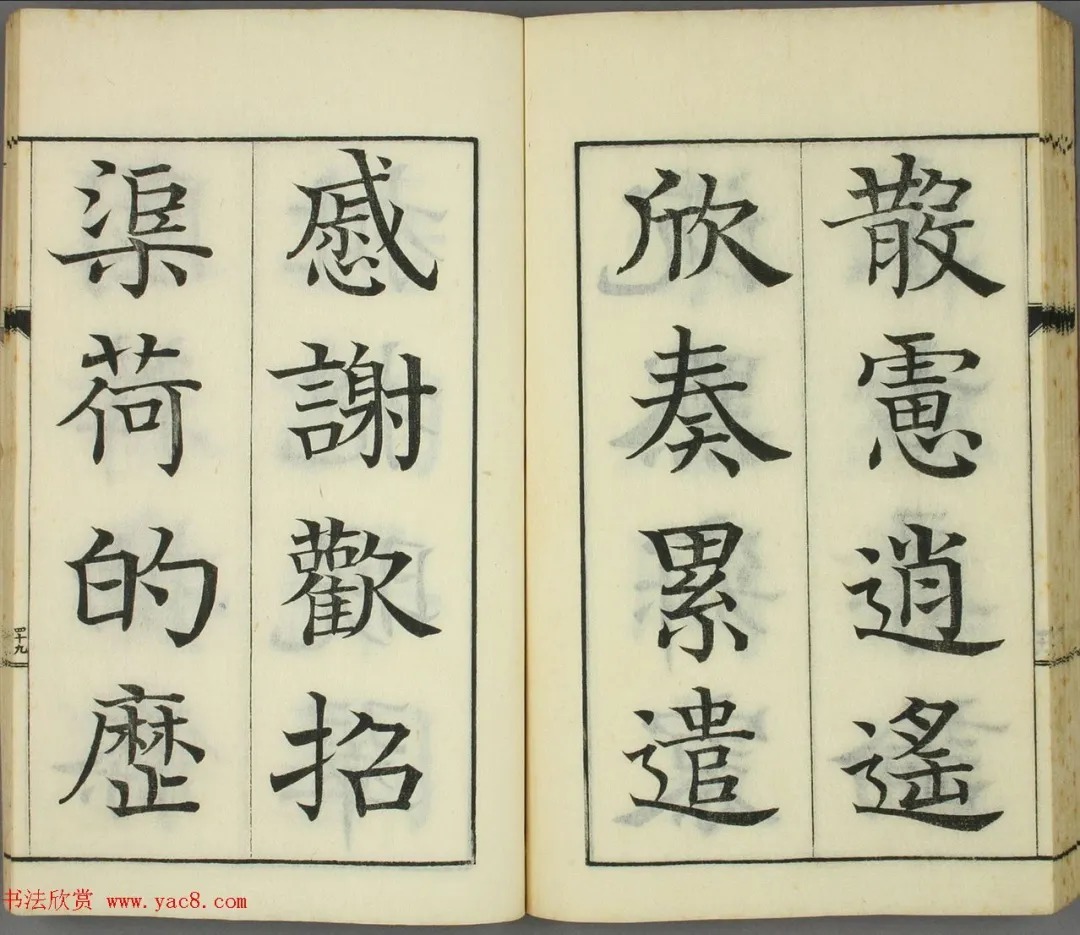 散慮逍遙
欣奏累遣
慼謝歡招
渠荷的歷
四十九
书法欣赏 www.yac8.com